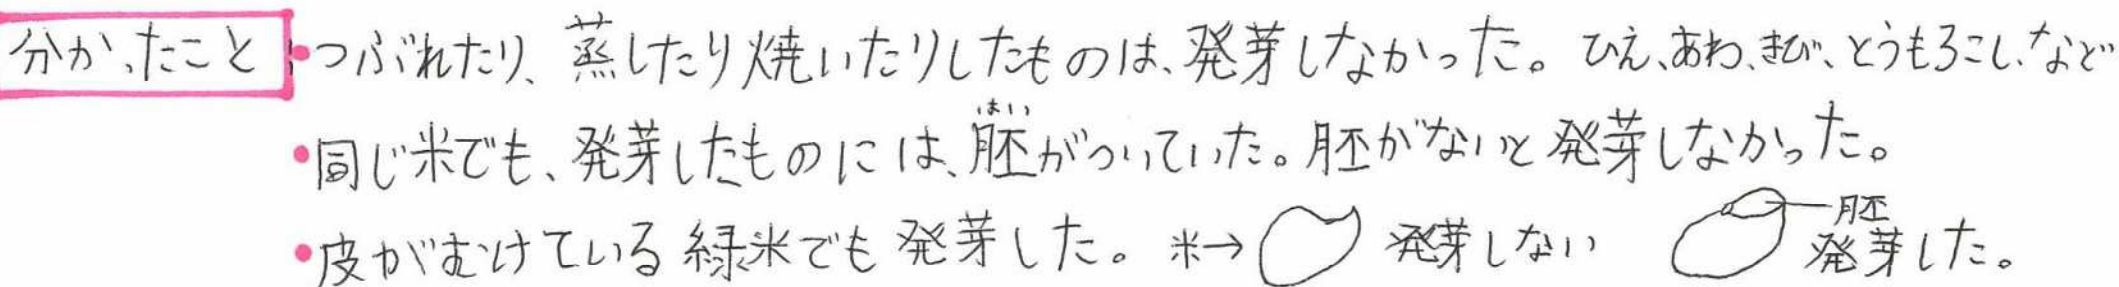 分かったこと ・つぶれたり、蒸したり焼いたりしたものは、発芽しなかった。ひえ、あわ、きび、とうもろこし、など
はい
・同じ米でも、発芽したものには、胚がついていた。胚がないと発芽しなかった。
・皮がむけている緑米でも発芽した。米→ 発芽しない 胚
発芽した。